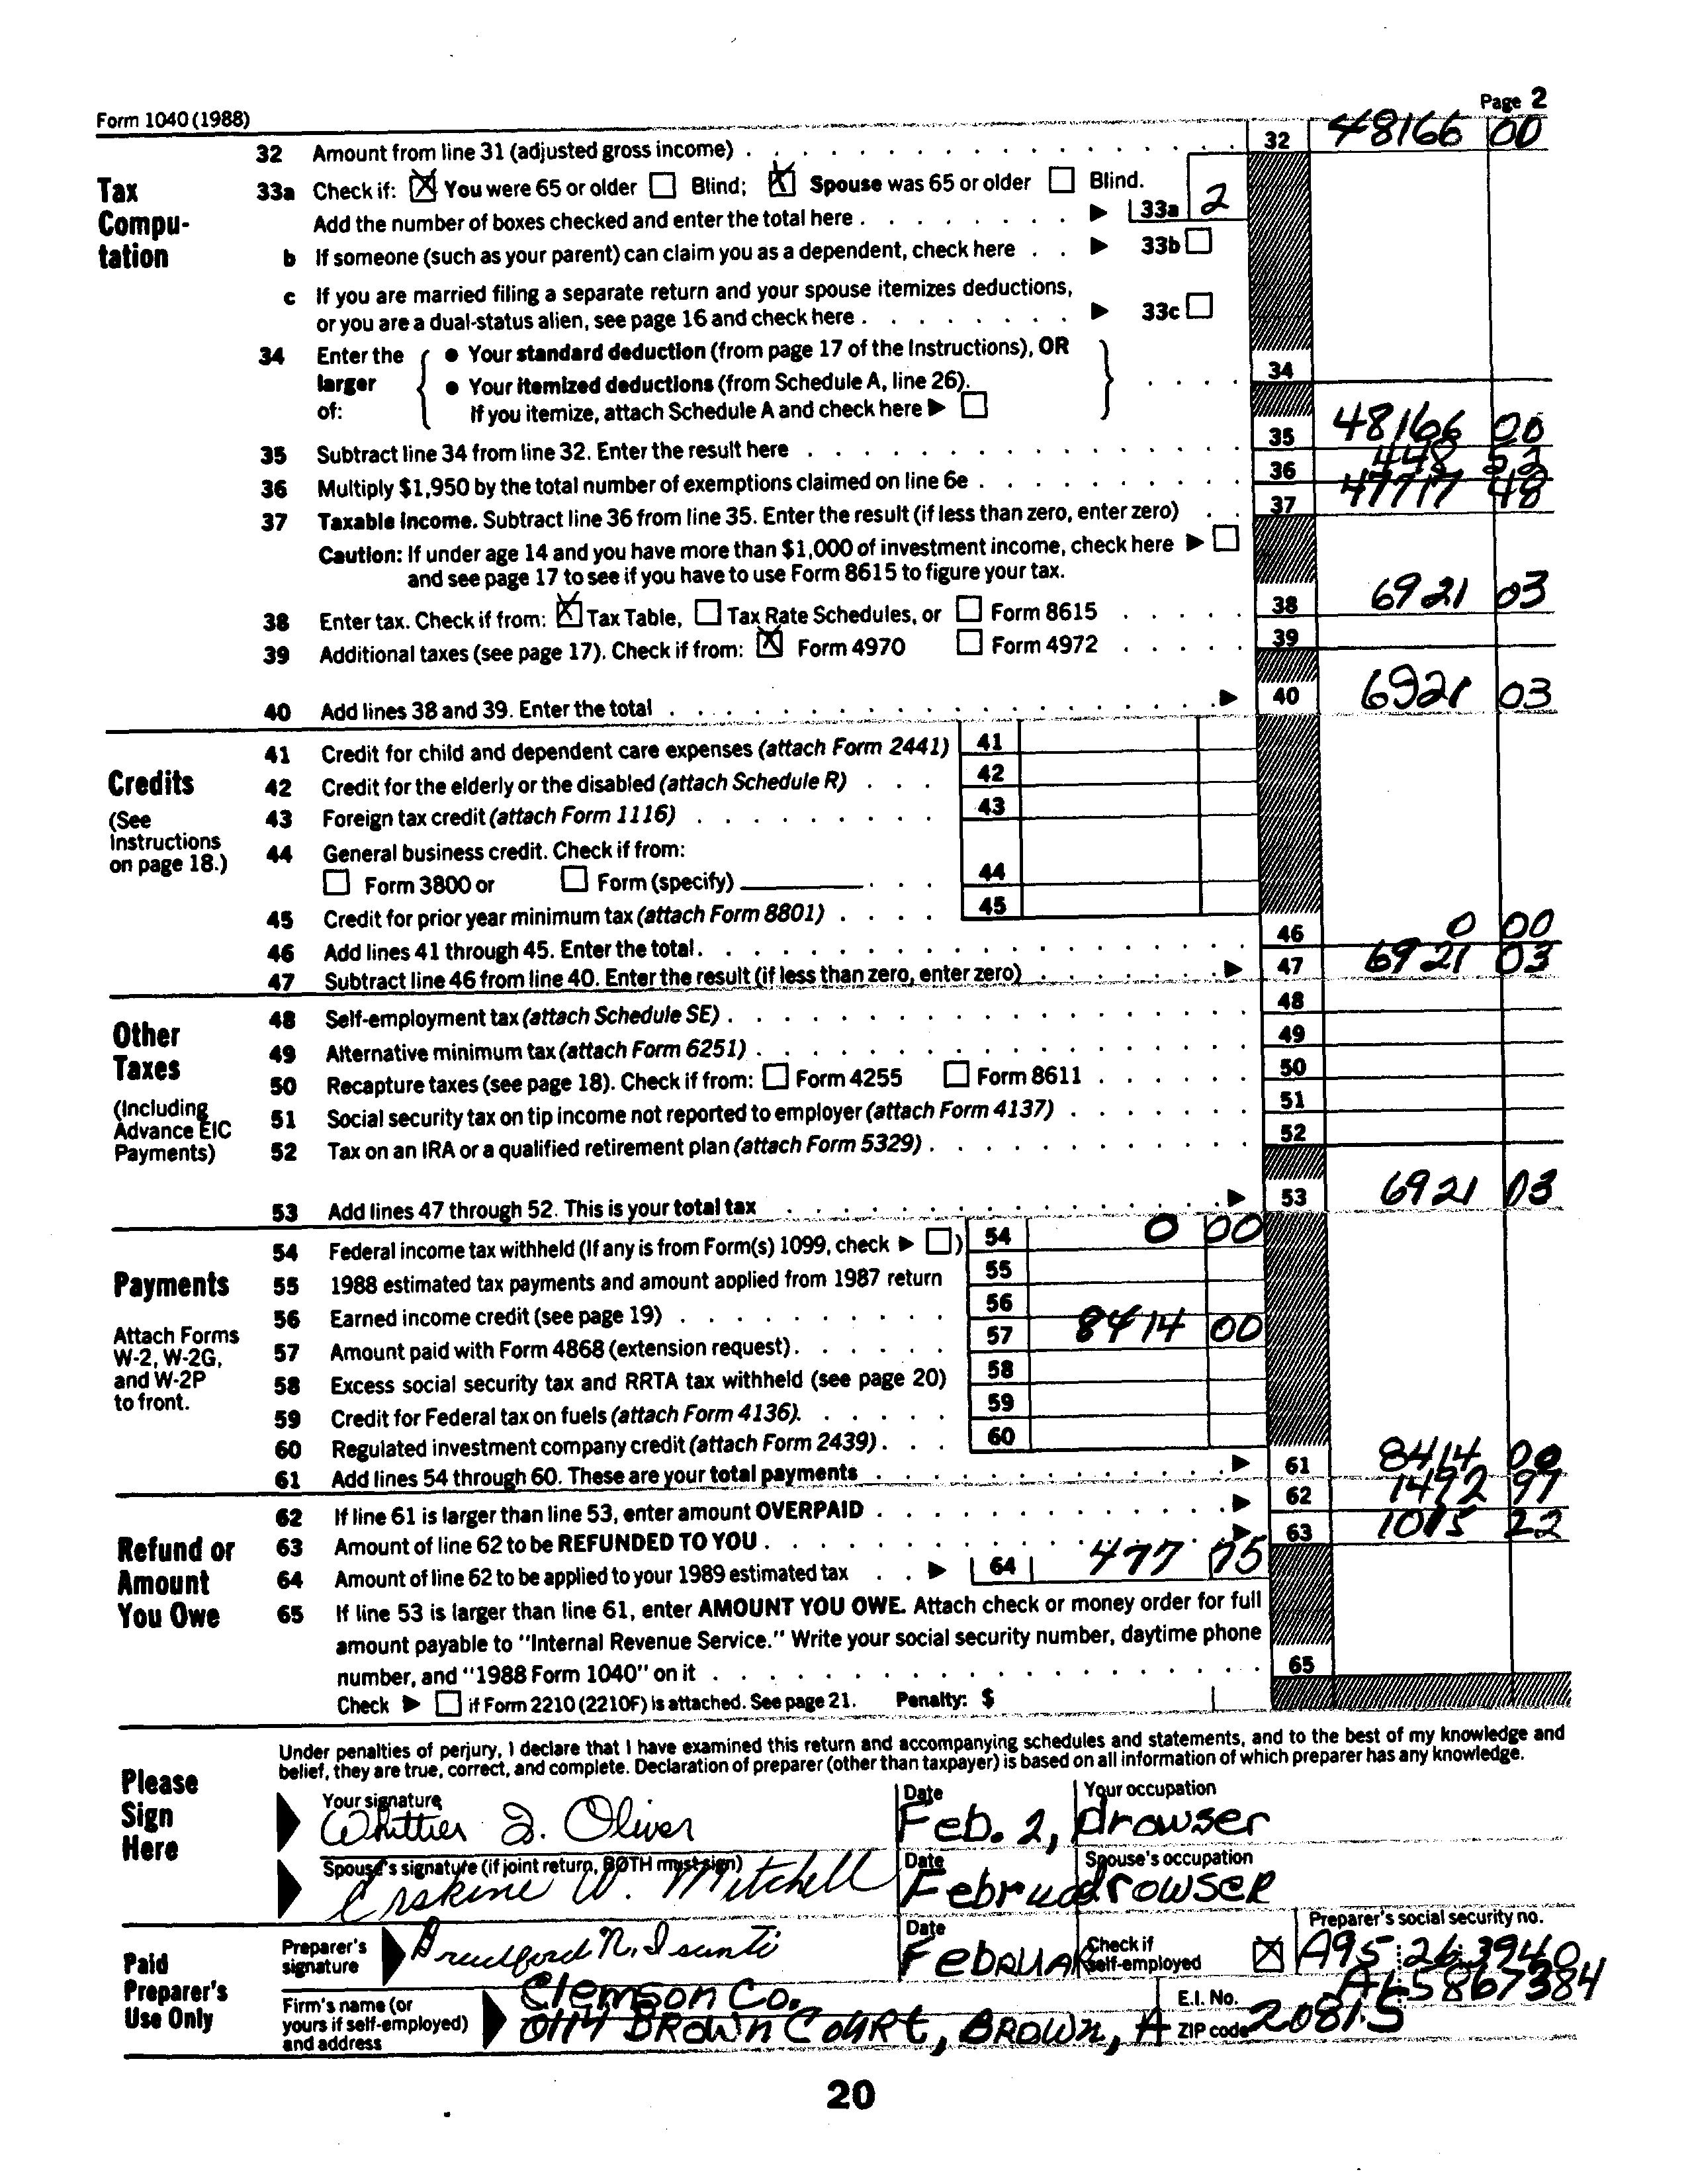 Form 1040 (1988)
Page 2
32 Amount from line 31 (adjusted gross income) 32 48166 00
Tax Compu-tation
33a Check if: X You were 65 or older Blind; X Spouse was 65 or older Blind.
Add the number of boxes checked and enter the total here 33a 2
b If someone (such as your parent) can claim you as a dependent, check here 33b
c If you are married filing a separate return and your spouse itemizes deductions,
or you are a dual-status alien, see page 16 and check here 33c
34 Enter the larger of: • Your standard deduction (from page 17 of the Instructions), OR
• Your itemized deductions (from Schedule A, line 26). 34
If you itemize, attach Schedule A and check here
35 Subtract line 34 from line 32. Enter the result here 35 48166 00
36 Multiply $1,950 by the total number of exemptions claimed on line 6e 36 448 52
37 Taxable income. Subtract line 36 from line 35. Enter the result (if less than zero, enter zero) 37 47717 48
Caution: If under age 14 and you have more than $1,000 of investment income, check here
and see page 17 to see if you have to use Form 8615 to figure your tax.
38 Enter tax. Check if from: X Tax Table, Tax Rate Schedules, or Form 8615 38 6921 03
39 Additional taxes (see page 17). Check if from: X Form 4970 Form 4972 39
40 Add lines 38 and 39. Enter the total 40 6921 03
Credits
(See Instructions on page 18.)
41 Credit for child and dependent care expenses (attach Form 2441) 41
42 Credit for the elderly or the disabled (attach Schedule R) 42
43 Foreign tax credit (attach Form 1116) 43
44 General business credit. Check if from:
Form 3800 or Form (specify) 44
45 Credit for prior year minimum tax (attach Form 8801) 45
46 Add lines 41 through 45. Enter the total. 46 0 00
47 Subtract line 46 from line 40. Enter the result (if less than zero, enter zero) 47 6921 03
Other Taxes
(Including Advance EIC Payments)
48 Self-employment tax (attach Schedule SE) 48
49 Alternative minimum tax (attach Form 6251) 49
50 Recapture taxes (see page 18). Check if from: Form 4255 Form 8611 50
51 Social security tax on tip income not reported to employer (attach Form 4137) 51
52 Tax on an IRA or a qualified retirement plan (attach Form 5329) 52
53 Add lines 47 through 52. This is your total tax 53 6921 03
Payments
Attach Forms W-2, W-2G, and W-2P to front.
54 Federal income tax withheld (If any is from Form(s) 1099, check ) 54 0 00
55 1988 estimated tax payments and amount applied from 1987 return 55
56 Earned income credit (see page 19) 56
57 Amount paid with Form 4868 (extension request) 57 8414 00
58 Excess social security tax and RRTA tax withheld (see page 20) 58
59 Credit for Federal tax on fuels (attach Form 4136). 59
60 Regulated investment company credit (attach Form 2439) 60
61 Add lines 54 through 60. These are your total payments 61 8414 00
Refund or Amount You Owe
62 If line 61 is larger than line 53, enter amount OVERPAID 62 1492 97
63 Amount of line 62 to be REFUNDED TO YOU 63 1015 22
64 Amount of line 62 to be applied to your 1989 estimated tax 64 477 75
65 If line 53 is larger than line 61, enter AMOUNT YOU OWE. Attach check or money order for full
amount payable to "Internal Revenue Service." Write your social security number, daytime phone
number, and "1988 Form 1040" on it 65
Check if Form 2210 (2210F) is attached. See page 21. Penalty: $
Please Sign Here
Under penalties of perjury, I declare that I have examined this return and accompanying schedules and statements, and to the best of my knowledge and
belief, they are true, correct, and complete. Declaration of preparer (other than taxpayer) is based on all information of which preparer has any knowledge.
Your signature Date Your occupation
Whittier Oliver Feb. 2, drowser
Spouse's signature (if joint return, BOTH must sign) Date Spouse's occupation
Erskine W. Mitchell drowser
Paid Preparer's Use Only
Preparer's signature Date Check if self-employed X Preparer's social security no.
A95 26 3940
Firm's name (or yours if self-employed) and address
Clemson Co. E.I. No. AL5867384
0114 Brown Court, Brown, A ZIP code 20815
20